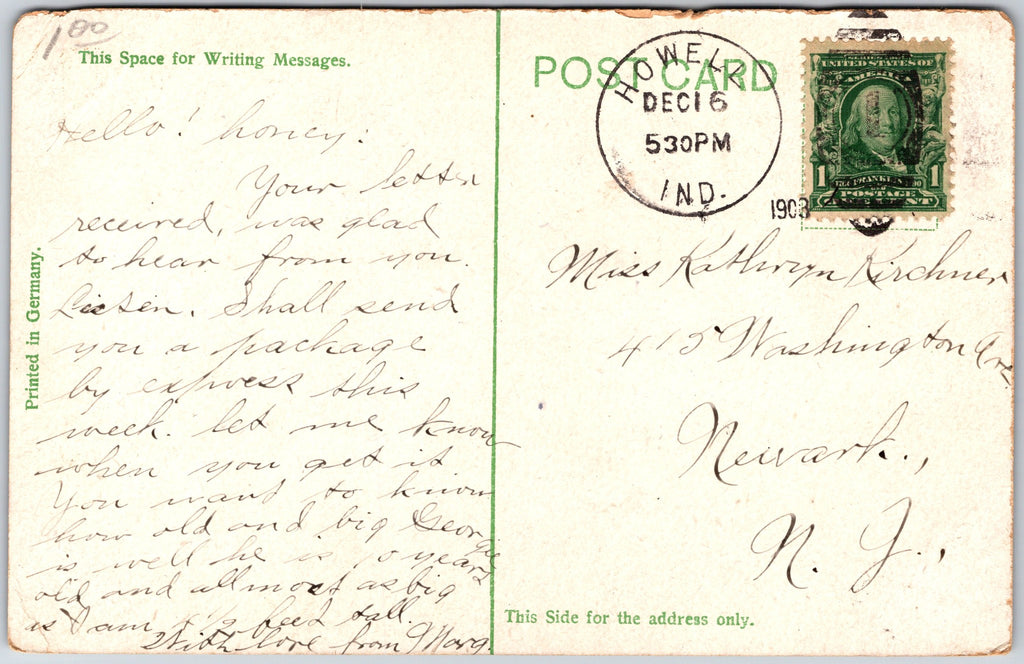 1 00
This Space for Writing Messages.
Hello! honey:
Your letter
received, was glad
to hear from you.
Listen. Shall send
you a package
by express this
week. let me know
when you get it
You want to know
how old and big George
is well he is years
old and allmost as big
as I am 1/2 feed tall.
With love from Marg
Printed in Germany.
POST CARD
HOWELL
DEC 16
530PM
IND.
1908
SERIES 1902
UNITED STATES OF
AMERICA
FRANKLIN
POSTAGE
1 CENT 1
Miss Kathryn Kirchner
415 Washington Ave
Newark.,
N. J.,
This Side for the address only.